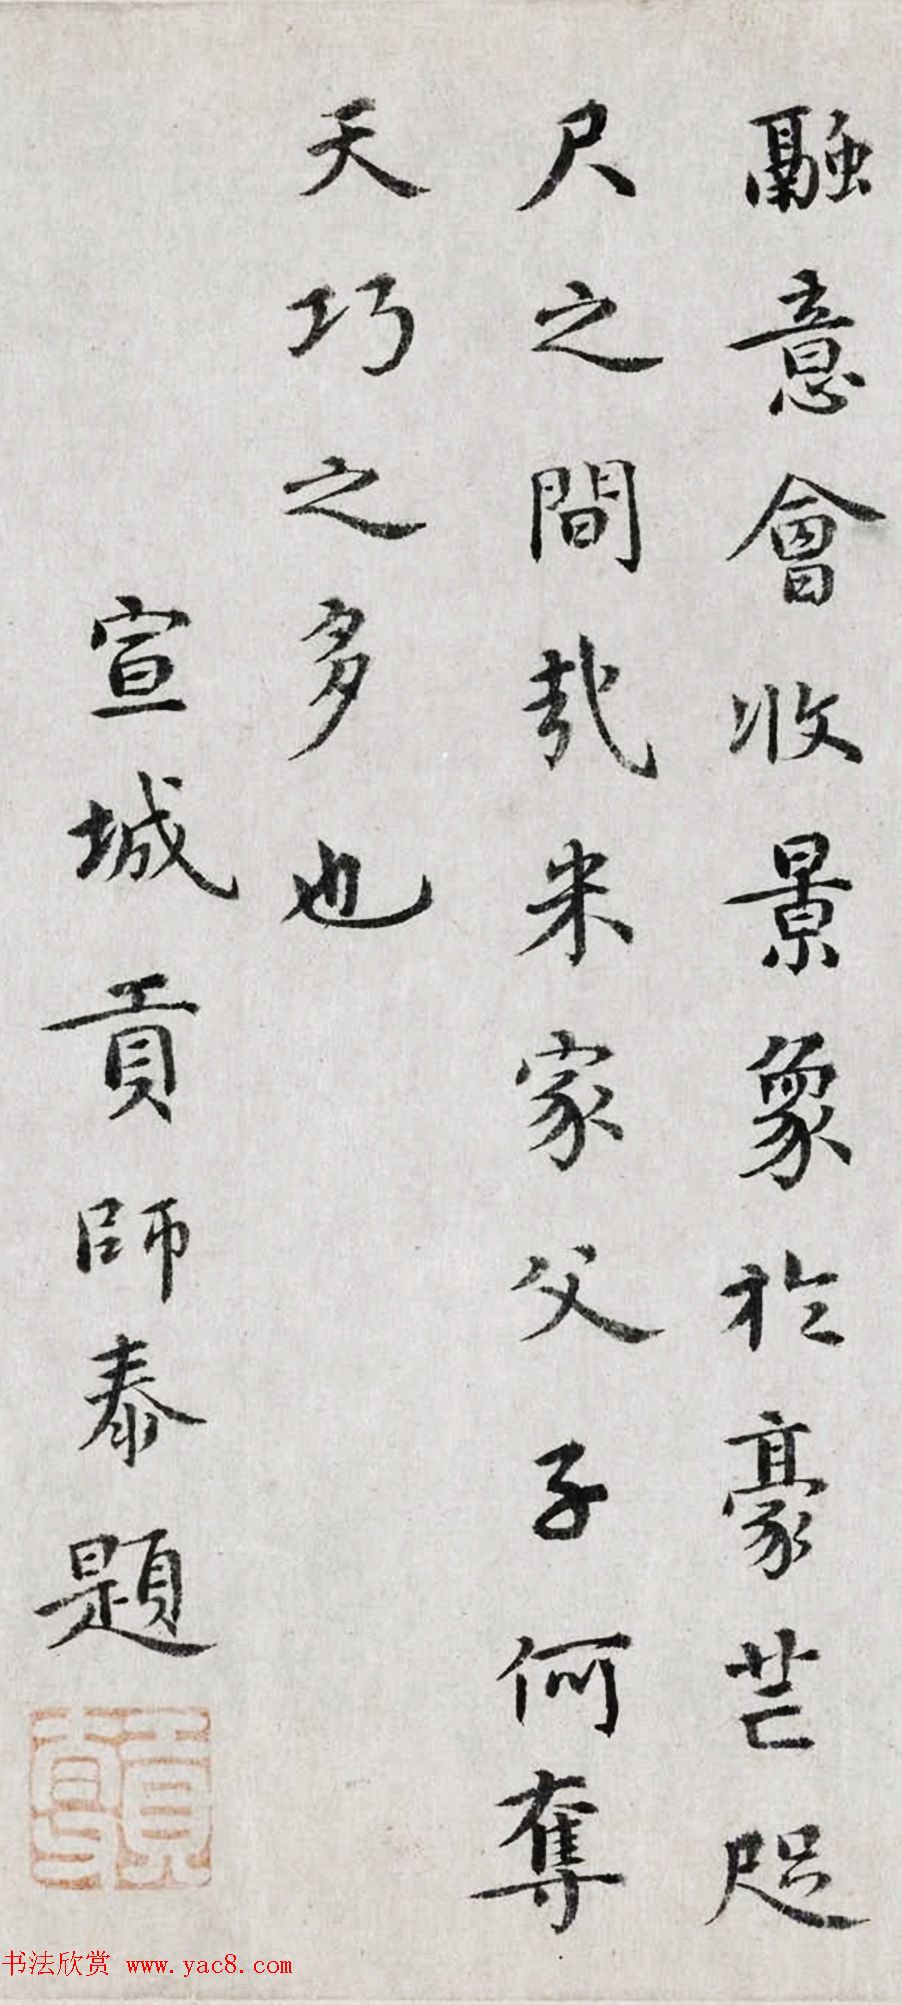 融意會收景象於豪芒咫
尺之間哉米家父子何奪
天巧之多也
宣城貢師泰題
书法欣赏 www.yac8.com